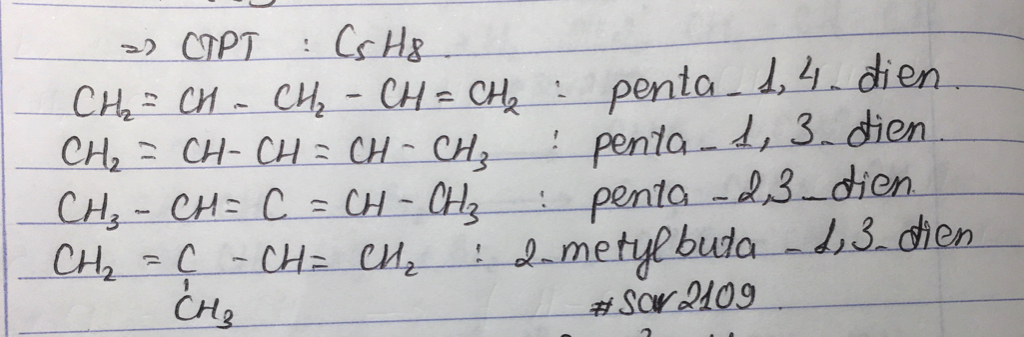 => CTPT : C5H8.
CH2 = CH - CH2 - CH = CH2 : penta - 1,4 - dien.
CH2 = CH - CH = CH - CH3 : penta - 1, 3 - dien.
CH3 - CH = C = CH - CH3 : penta - 2,3 - dien.
CH2 = C - CH = CH2 : 2-metylbuta - 1,3 - dien
CH3 #Scar2109